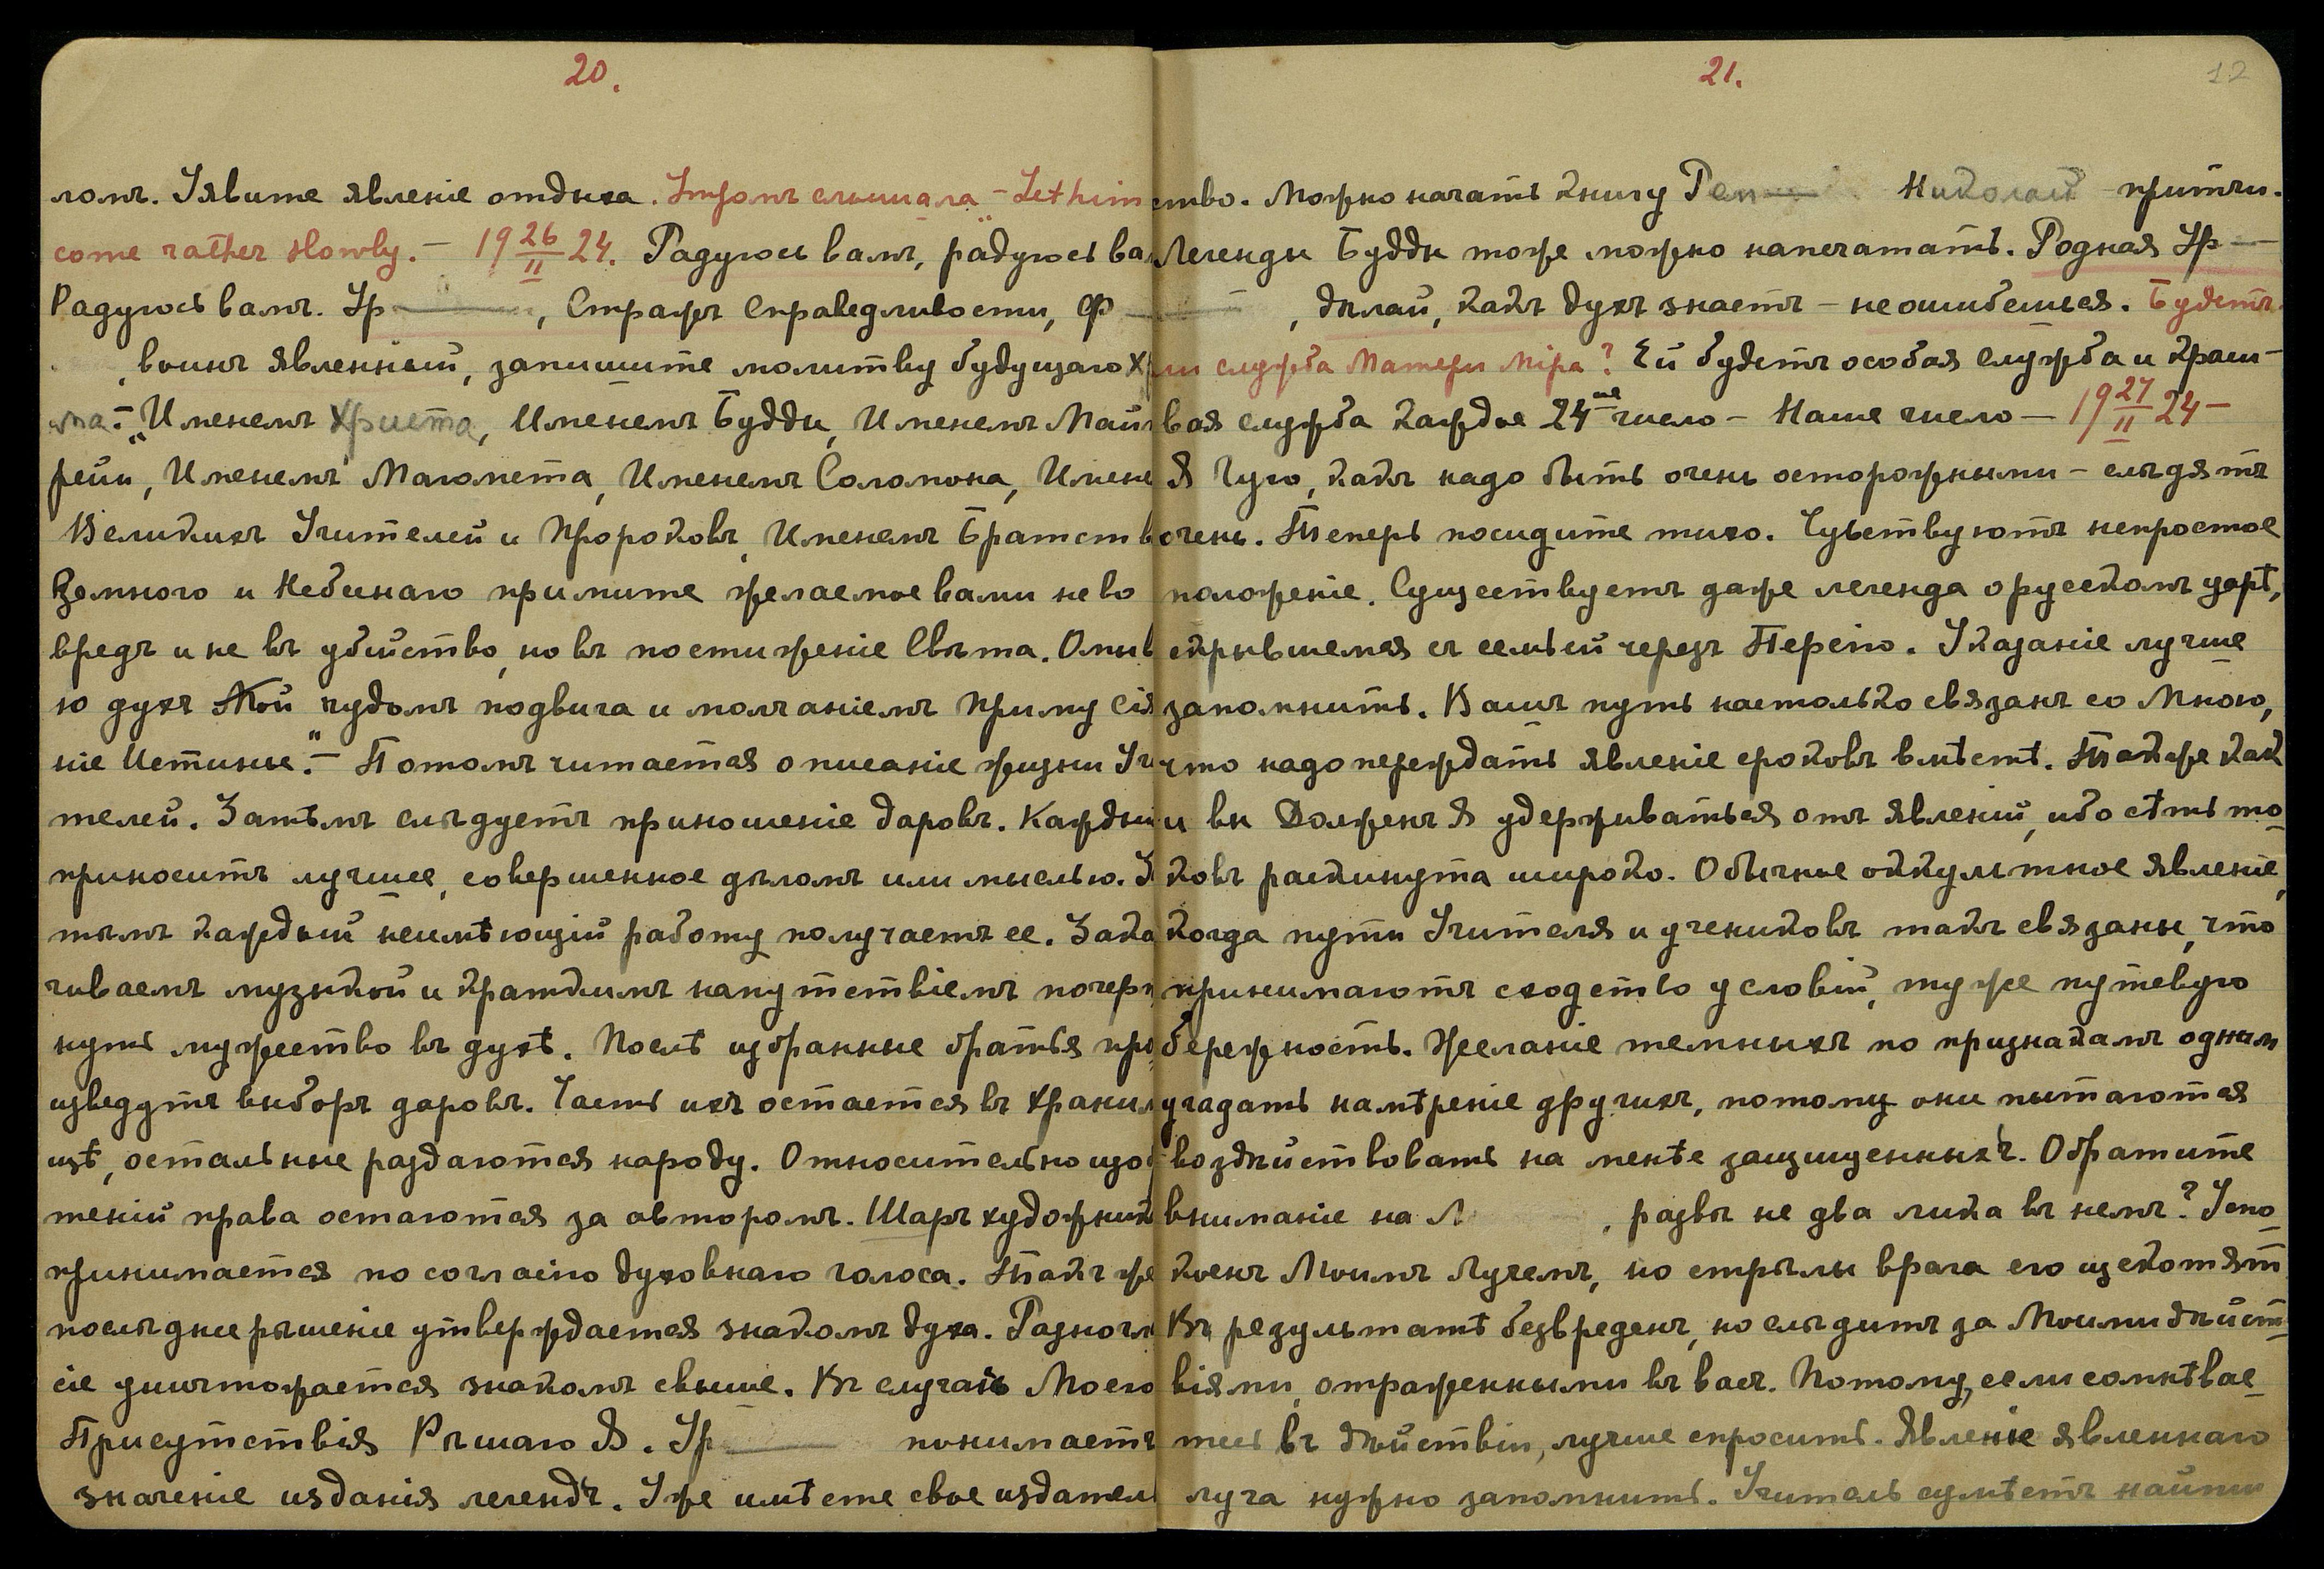 20.
ломъ. Уявите явленіе отдыха. Утромъ слышала – "Let him
come rather slowly. – 19 26/II 24. Радуюсь вамъ, радуюсь ва
Радуюсь вамъ. Ур , Стражъ Справедливости, Ф
, воинъ явленный, запишите молитву будущаго Х
ма – „Именемъ Христа, Именемъ Будды, Именемъ Май
рейи, Именемъ Магомета, Именемъ Соломона, Имене
Великихъ Учителей и Пророковъ, Именемъ Братств
Земного и Небеснаго примите желаемое вами не во
вредъ и не въ убійство, но въ постиженіе Свѣта. Омыв
ю духъ мой чудомъ подвига и молчаніемъ приму Сія
ніе Истины." – Потомъ читается описаніе жизни Уч
телей. Затѣмъ слѣдуетъ приношеніе даровъ. Кажды
приноситъ лучшее, совершенное дѣломъ или мыслью. З
тѣмъ каждый неимѣющій работу получаетъ ее. Зака
чиваемъ музыкой и краткимъ напутствіемъ почерп
нуть мужество въ духѣ. Послѣ избранные братья про
изведутъ выборъ даровъ. Часть ихъ остается въ Храни
щѣ, остальные раздаются народу. Относительно изоб
теній права остаются за авторомъ. Шаръ художник
принимается по согласію духовнаго голоса. Такъ же
послѣднее рѣшеніе утверждается знакомъ духа. Разногл
сіе уничтожается знакомъ свыше. Въ случаѣ Моего
Присутствія Рѣшаю Я. Ур понимаетъ
значеніе изданія легендъ. Уже имѣете свое издатель
21.
12
ство. Можно начать книгу Николай притчи.
Легенды Будды тоже можно напечатать. Родная Ур –
, дѣлай, какъ духъ знаетъ – не ошибешься. Будетъ
ли служба Матери Міра? Ей будетъ особая служба и краси-
вая служба каждое 24ое число – Наше число – 19 27/II 24 –
Я Чую, какъ надо быть очень осторожными – слѣдятъ
очень. Теперь посидите тихо. Чувствуютъ непростое
положеніе. Существуетъ даже легенда о русскомъ царѣ,
скрывшемся съ семьей черезъ Персію. Указаніе лучше
запомнить. Вашъ путь настолько связанъ со Мною,
что надо переждать явленіе сроковъ вмѣстѣ. Также как
и вы Долженъ Я удерживаться отъ явленій, ибо сѣть то-
ковъ раскинута широко. Обычное оккультное явленіе,
когда пути Учителя и учениковъ такъ связаны, что
принимаютъ сходство условій, ту же путевую
бережность. Желаніе темныхъ по признакамъ одним
угадать намѣреніе другихъ, потому они пытаются
воздѣйствовать на менѣе защищенныхъ. Обратите
вниманіе на Л , развѣ не два лика въ немъ? Успо-
коенъ Моимъ Лучемъ, но стрѣлы врага его щекотят
Въ результатѣ безвреденъ, но слѣдитъ за Моими дѣйст-
віями, отраженными въ васъ. Потому, если сомнѣвае-
тесь въ дѣйствіи, лучше спросить. Явленіе явленнаго
луча нужно запомнить. Учитель сумѣетъ найти